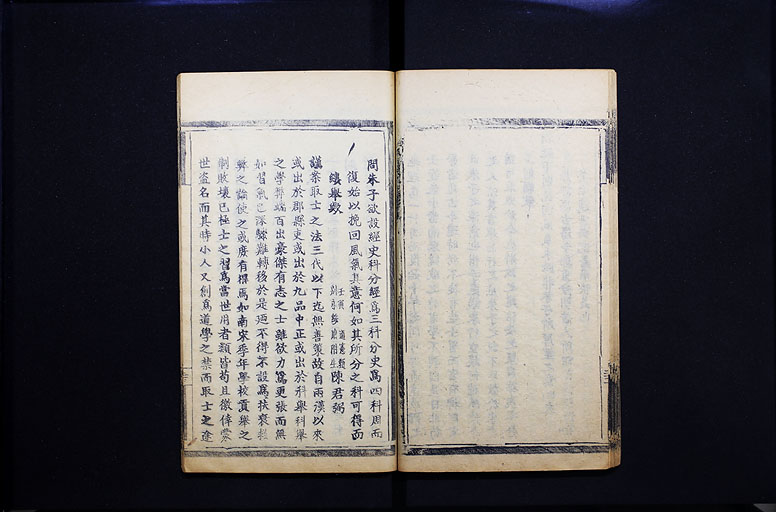 問朱子欲設經史科分經爲三科分史爲四科周而
復始以挽回風氣其意何如其所分之科可得而
縷舉歟
陳君弼
議案取士之法三代以下迄無善策故自兩漢以來
或出於郡縣吏或出於九品中正或出於科舉科舉
之學弊端百出豪傑有志之士雖欲力爲更張而無
如習氣已深驟難轉移於是迺不得不設爲扶衰救
弊之論使之或庶有得焉如南宋季年學校貢舉之
制敗壞已極士之習爲當世用者類皆苟且徼倖
世盗名而其時小人又創爲道學之禁而取士之途